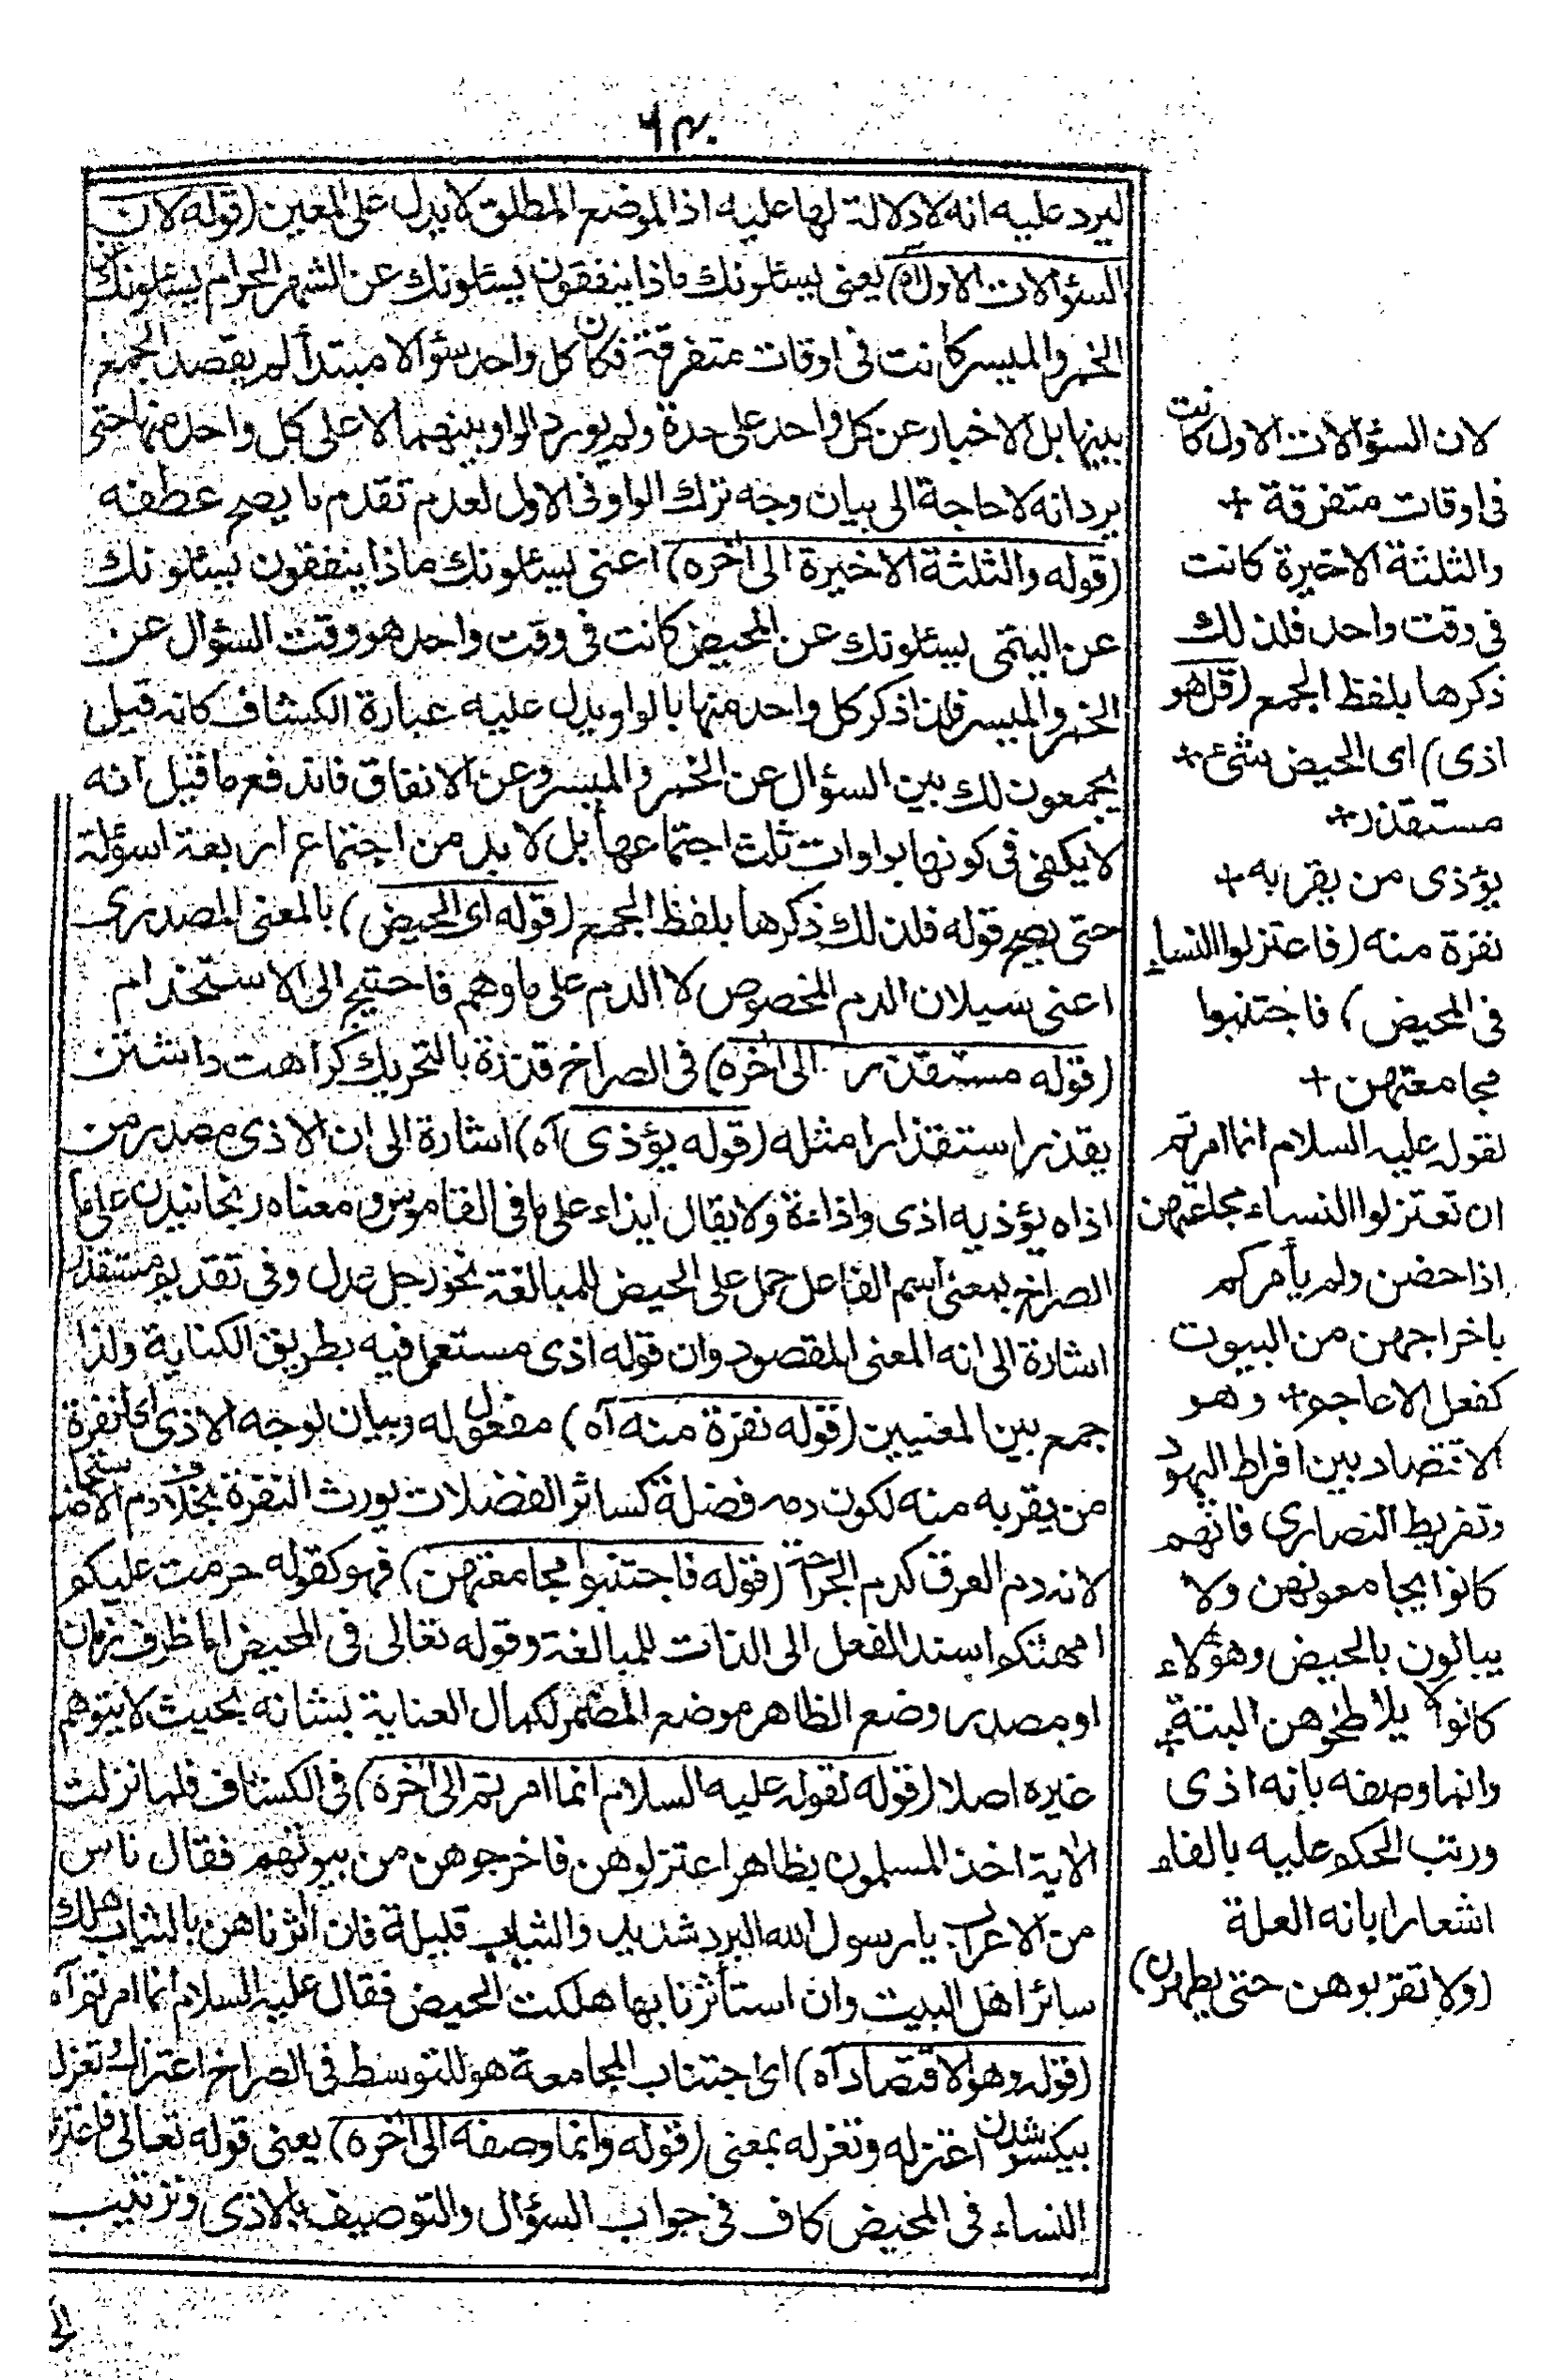 ٦٣٠
ليرد عليه انه لا دلالة لها عليه اذ الموضع المطلق لا يدل على المعين (قوله لان
السؤالات الاول اه) يعنى يسئلونك ماذا ينفقون يسئلونك عن الشهر الحرام يسئلونك عن
الخمر والميسر كانت فى اوقات متفرقة فكان كل واحد سؤالا مبتدأ لم يقصد الجمع
بينها بل الاخبار عن كل واحد على حدة ولم يورد الواو بينهما لا على كل واحد منها حتى
يرد انه لا حاجة الى بيان وجه ترك الواو فى الاول لعدم تقدم ما يصح عطفه
(قوله والثلثة الاخيرة الى اخره) اعنى يسئلونك ماذا ينفقون يسئلونك
عن اليتمى يسئلونك عن المحيض كانت فى وقت واحد هو وقت السؤال عن
الخمر والميسر فلذا ذكر كل واحد منها بالواو يدل عليه عبارة الكشاف كانه قيل
يجمعون لك بين السؤال عن الخمر والميسر وعن الانفاق فاندفع ما قيل انه
لا يكفى فى كونها بواوات ثلث اجتماعها بل لا بد من اجتماع اربعة اسؤلة
حتى يصح قوله فلذلك ذكرها بلفظ الجمع (قوله اى الحيض) بالمعنى المصدرى
اعنى سيلان الدم المخصوص لا الدم على ما وهم فاحتيج الى الاستخدام
(قوله مستقذر الى اخره) فى الصراح قذرة بالتحريك كراهت داشتن
يقذر استقذارا مثله (قوله يؤذى آه) اشارة الى ان الاذى مصدر من
اذاه يؤذيه اذى واذاءة ولا يقال ايذاء على ما فى القاموس ومعناه رنجانيدن على ما
الصراح بمعنى اسم الفاعل حمل على الحيض للمبالغة نحو رجل عدل وفى تقديم مستقذر
اشارة الى انه المعنى المقصود وان قوله اذى مستعمل فيه بطريق الكناية ولذا
جمع بين المعنيين (قوله نفرة منه آه) مفعول له وبيان لوجه الاذى اى لنفرة
من يقربه منه لكون دمه فضلة كسائر الفضلات يورث النفرة بخلاف دم الاستحاضة
لانه دم العرق كدم الجراحة (قوله فاجتنبوا مجامعتهن) فهو كقوله حرمت عليكم
امهتكم اسند الفعل الى الذات للمبالغة وقوله تعالى فى المحيض اما ظرف زمان
او مصدر وضع الظاهر موضع المضمر لكمال العناية بشانه بحيث لا يتوهم
غيره اصلا (قوله لقوله عليه السلام انما امرتم الى اخره) فى الكشاف فلما نزلت
الاية اخذ المسلمون بظاهر اعتزلوهن فاخرجوهن من بيوتهم فقال ناس
من الاعراب يا رسول الله البرد شديد والثياب قليلة فان اثرناهن بالثياب هلك
سائر اهل البيت وان استأثرنا بها هلكت الحيض فقال عليه السلام انما امرتم آه
(قوله وهو الاقتصاد آه) اى اجتناب المجامعة هو التوسط فى الصراح اعتزال وتعزل
بيكسو شدن اعتزله وتعزله بمعنى (قوله وانما وصفه الى اخره) يعنى قوله تعالى فاعتزلوا
النساء فى المحيض كاف فى جواب السؤال والتوصيف بالاذى وترتيب
لان السؤالات الاول كانت
فى اوقات متفرقة +
والثلثة الاخيرة كانت
فى وقت واحد فلذلك
ذكرها بلفظ الجمع (قل هو
اذى) اى الحيض شئ +
مستقذر +
يؤذى من يقربه +
نفرة منه (فاعتزلوا النساء
فى المحيض) فاجتنبوا
مجامعتهن +
لقوله عليه السلام انما امرتم
ان تعتزلوا النساء مجامعتهن
اذا حضن ولم يأمركم
باخراجهن من البيوت
كفعل الاعاجم + وهو
الاقتصاد بين افراط اليهود
وتفريط النصارى فانهم
كانوا يجامعونهن ولا
يبالون بالحيض وهؤلاء
كانوا لا يلاطخوهن البتة +
وانما وصفه بانه اذى
ورتب الحكم عليه بالفاء
اشعارا بانه العلة
(ولا تقربوهن حتى يطهرن)